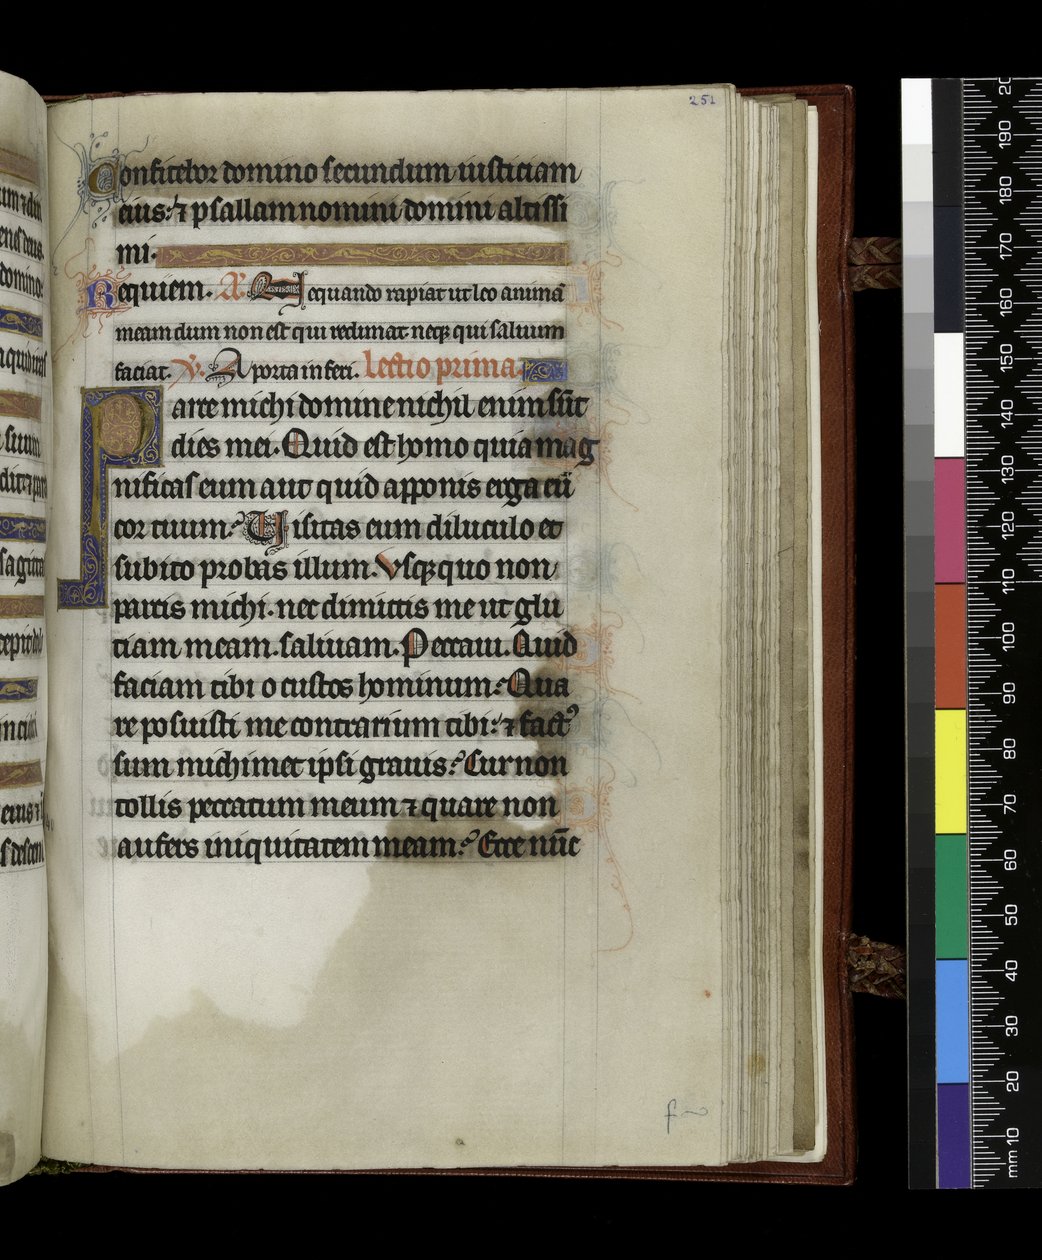 251
Confitebor domino secundum iusticiam
eius: ⁊ psallam nomini domini altissi
mi.
Requiem. A͞. Nequando rapiat ut leo animā
meam dum non est qui redimat neqꝫ qui saluum
faciat. V. A porta inferi. Lectio prima.
Parce michi domine nichil enim sūt
dies mei. Quid est homo quia mag
nificas eum aut quid apponis erga eū
cor tuum? Uisitas eum diluculo et
subito probas illum. Vsqꝫquo non
parcis michi. nec dimittis me ut glu
tiam meam saliuam. Peccaui. Quid
faciam tibi o custos hominum? Qua
re posuisti me contrarium tibi: ⁊ factꝰ
sum michimet ipsi grauis? Cur non
tollis peccatum meum ⁊ quare non
aufers iniquitatem meam? Ecce nūc
mm 10 20 30 40 50 60 70 80 90 100 110 120 130 140 150 160 170 180 190